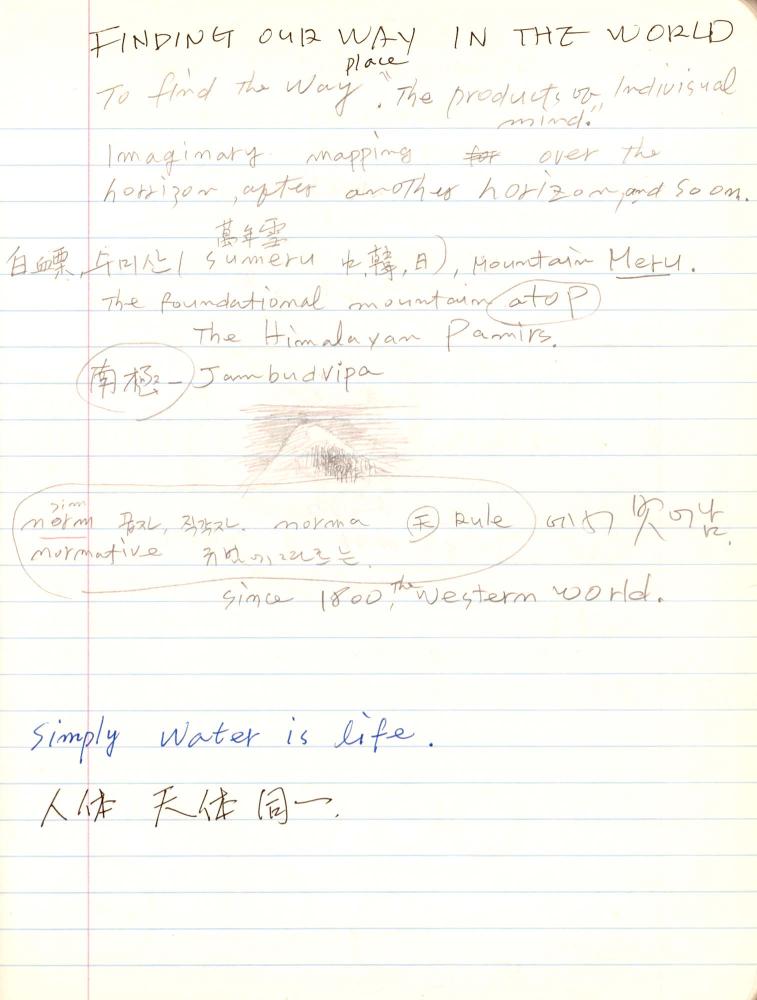 FINDING OUR WAY IN THE WORLD
place
To find the Way. "The products of Indivisual
mind."
Imaginary mapping over the
horrizon, after another horizon, and so on.
萬年雪
수미산( sumeru 中, 韓, 日), Mountain Meru.
The foundational mountain atop
The Himalayan Pamirs.
南極 - Jambudvipa
norm 직각자. norma 天 Rule
normative 에 따르는
since 1800, the Western world.
Simply Water is life.
人体 天体 同一.